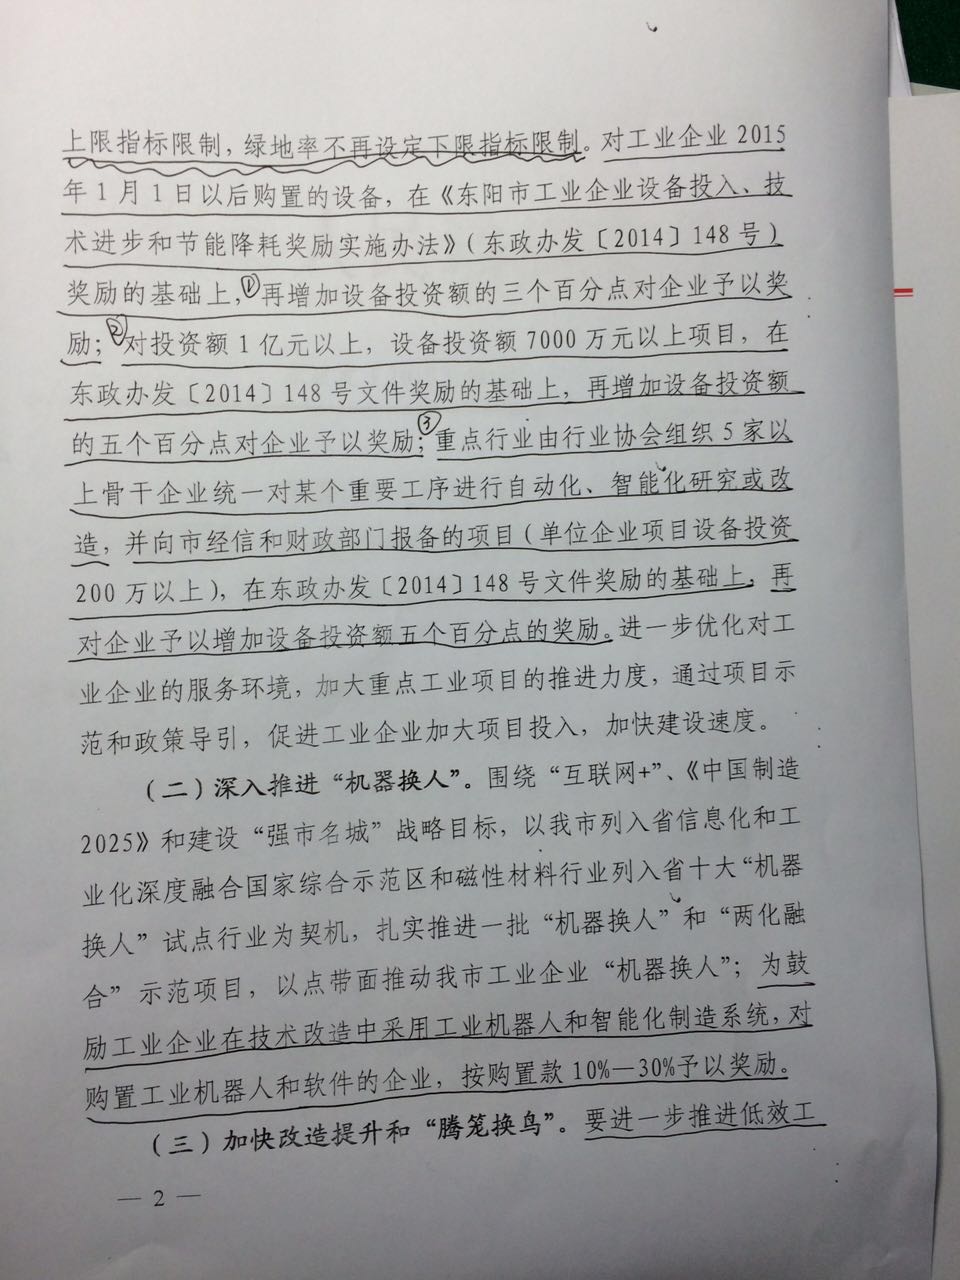 上限指标限制，绿地率不再设定下限指标限制。对工业企业 2015
年 1 月 1 日以后购置的设备，在《东阳市工业企业设备投入、技
术进步和节能降耗奖励实施办法》（东政办发〔2014〕148 号）
奖励的基础上，①再增加设备投资额的三个百分点对企业予以奖
励；②对投资额 1 亿元以上，设备投资额 7000 万元以上项目，在
东政办发〔2014〕148 号文件奖励的基础上，再增加设备投资额
的五个百分点对企业予以奖励；③重点行业由行业协会组织 5 家以
上骨干企业统一对某个重要工序进行自动化、智能化研究或改
造，并向市经信和财政部门报备的项目（单位企业项目设备投资
200 万以上），在东政办发〔2014〕148 号文件奖励的基础上，再
对企业予以增加设备投资额五个百分点的奖励。进一步优化对工
业企业的服务环境，加大重点工业项目的推进力度，通过项目示
范和政策导引，促进工业企业加大项目投入，加快建设速度。
（二）深入推进“机器换人”。围绕“互联网+”、《中国制造
2025》和建设“强市名城”战略目标，以我市列入省信息化和工
业化深度融合国家综合示范区和磁性材料行业列入省十大“机器
换人”试点行业为契机，扎实推进一批“机器换人”和“两化融
合”示范项目，以点带面推动我市工业企业“机器换人”；为鼓
励工业企业在技术改造中采用工业机器人和智能化制造系统，对
购置工业机器人和软件的企业，按购置款 10%—30%予以奖励。
（三）加快改造提升和“腾笼换鸟”。要进一步推进低效工
— 2 —